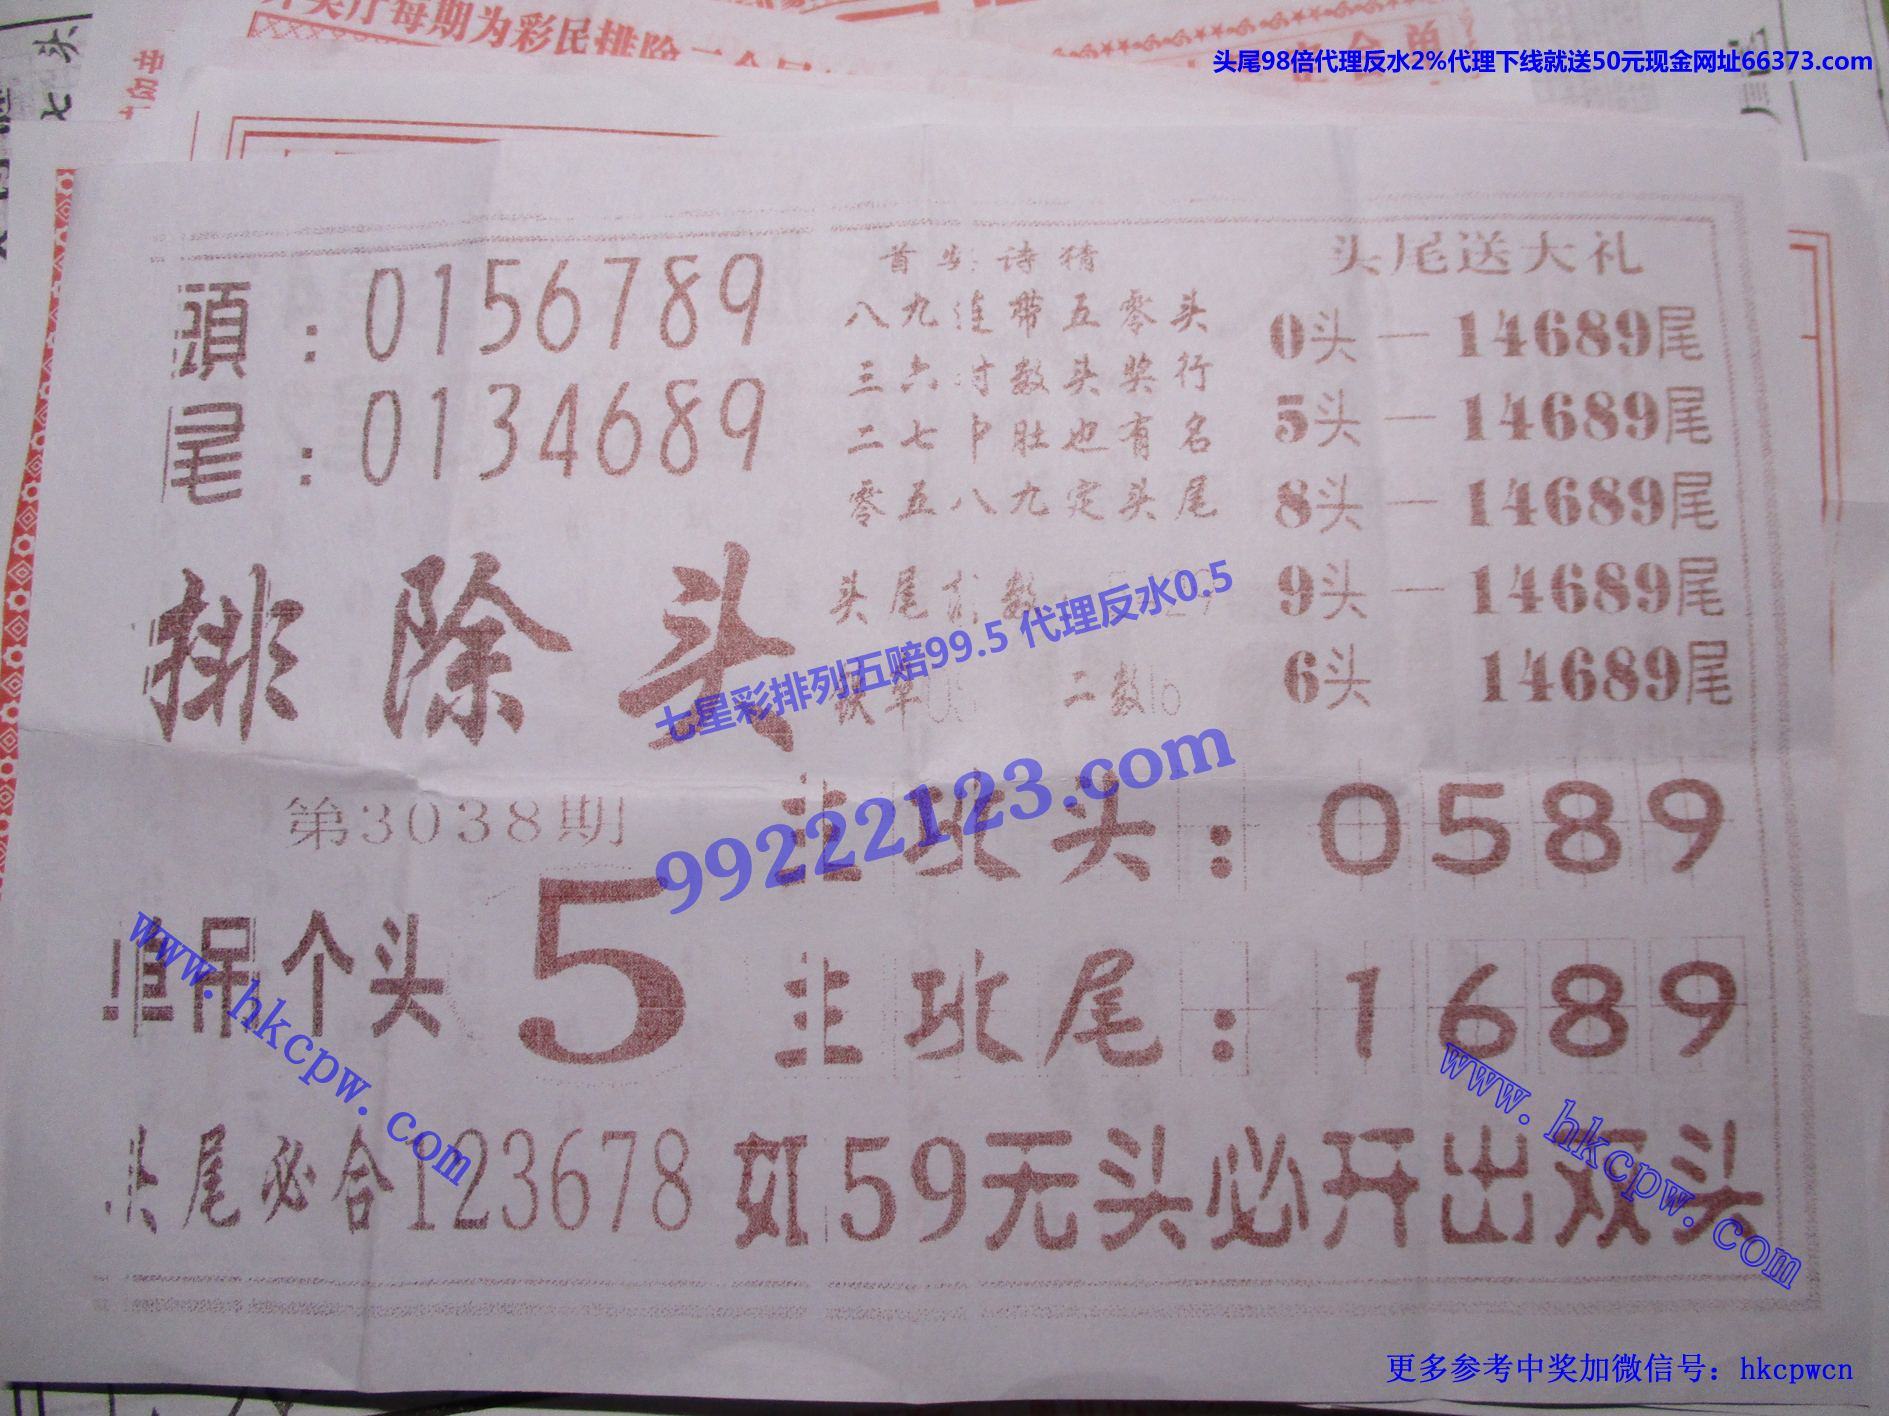 头尾98倍代理反水2%代理下线就送50元现金网址66373.com
每期为彩民排除二个
頭：0156789
尾：0134689
排除头
第3038期
吊个头 5
头尾必合123678
首 诗猜
八九连带五零头
三六对数头奖行
二七中肚也有名
零五八九定头尾
头尾 数
二数16
头尾送大礼
0头—14689尾
5头—14689尾
8头—14689尾
9头—14689尾
6头 14689尾
主攻头：0589
主攻尾：1689
如59无头必开出双头
七星彩排列五赔99.5 代理反水0.5
99222123.com
www.hkcpw.com
www.hkcpw.com
更多参考中奖加微信号：hkcpwcn